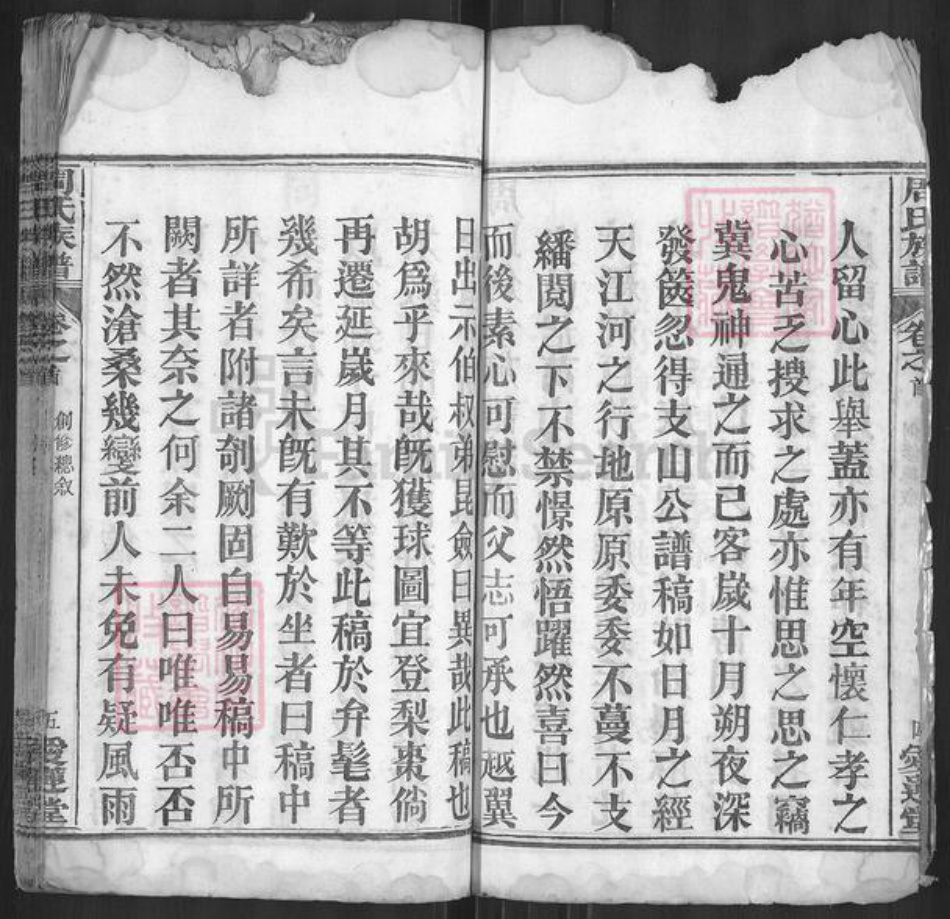 周氏族譜 卷之首 愛蓮堂
人留心此舉蓋亦有年空懷仁孝之
心苦乏搜求之處亦惟思之思之竊
冀鬼神通之而已客歲十月朔夜深
發篋忽得支山公譜稿如日月之經
天江河之行地原原委委不蔓不支
繙閱之下不禁憬然悟躍然喜曰今
而後素心可慰而父志可承也越翼
日出示伯叔弟昆僉曰異哉此稿也
胡爲乎來哉旣獲球圖宜登梨棗倘
再遷延歲月其不等此稿於弁髦者
幾希矣言未旣有歎於坐者曰稿中
所詳者附諸剞劂固自易易稿中所
闕者其奈之何余二人曰唯唯否否
不然滄桑幾變前人未免有疑風雨
周氏族譜 卷之首 創修總叙 五 愛蓮堂
FamilySearch